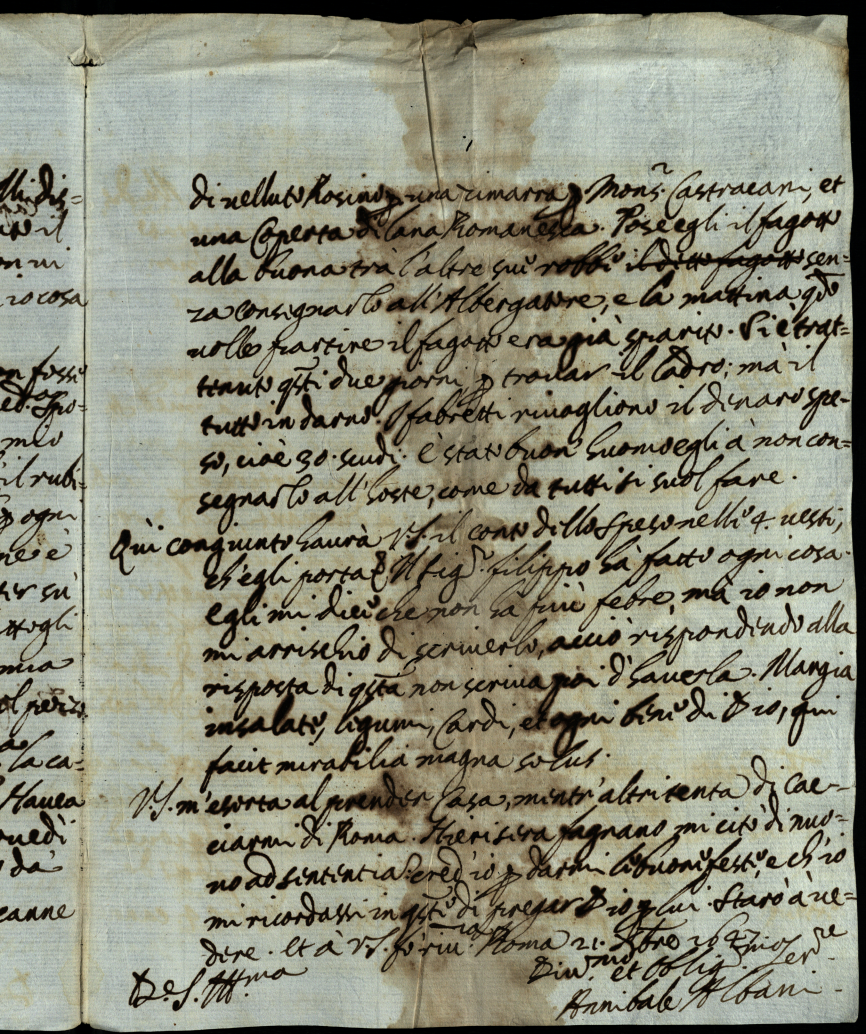 lli dis=
il
on ui
io cosa
on fosse
Spo=
meo
il rubi=
ꝑ ogni
ne è
ter sù
ttogli
mia
ol prezzo
la ca=
Hauea
ouedì
dà
eanne
di uelluto Rosino ꝑ una zimarra ꝑ Mons.r Castracani, et
una Coperta di lana Romanesca. Pose egli il fagotto
alla buona trà l'altre sue robbe il ditto fagotto sen=
za consegnarlo all'Albergatore, e la mattina qdo
uolle partire il fagotto era già sparito. Si è trat=
tenuto qsti due giorni ꝑ trouar il ladro; mà il
tutto indarno. I fabretti riuogliono il denaro spe=
so, cioè 30. scudi. è stato buon huomo egli à non con=
segnarlo all'hoste, come da tutti si suol fare.
Quì congiunto haurà V.S. il conto dello speso nelli 4 uesti,
ch'egli porta. Il Sig.r filippo hà fatto ogni cosa.
egli mi dice che non hà più febre, mà io non
mi arrischio di scriuerlo, acciò rispondendo alla
risposta di qsta non scriua poi d'hauerla. Mangia
insalate, ligumi, Cardi, et ogni bene di Dio, qui
facit mirabilia magna solus.
V.S. m'esorta al prender Casa, mentr'altri tenta di cac=
ciarmi di Roma. Hierisera fagnano mi citò di nuo=
uo ad sententia. cred'io ꝑ darmi le buone feste, e ch'io
mi ricordassi in qste di pregar Dio ꝑ lui. Starò à ue=
dere. Et à V.S. fo riu.za Roma 21. Xbre 1647
Di V.S. Ill.ma
Diu.mo et Oblig.mo Ser.re
Annibale Albani.